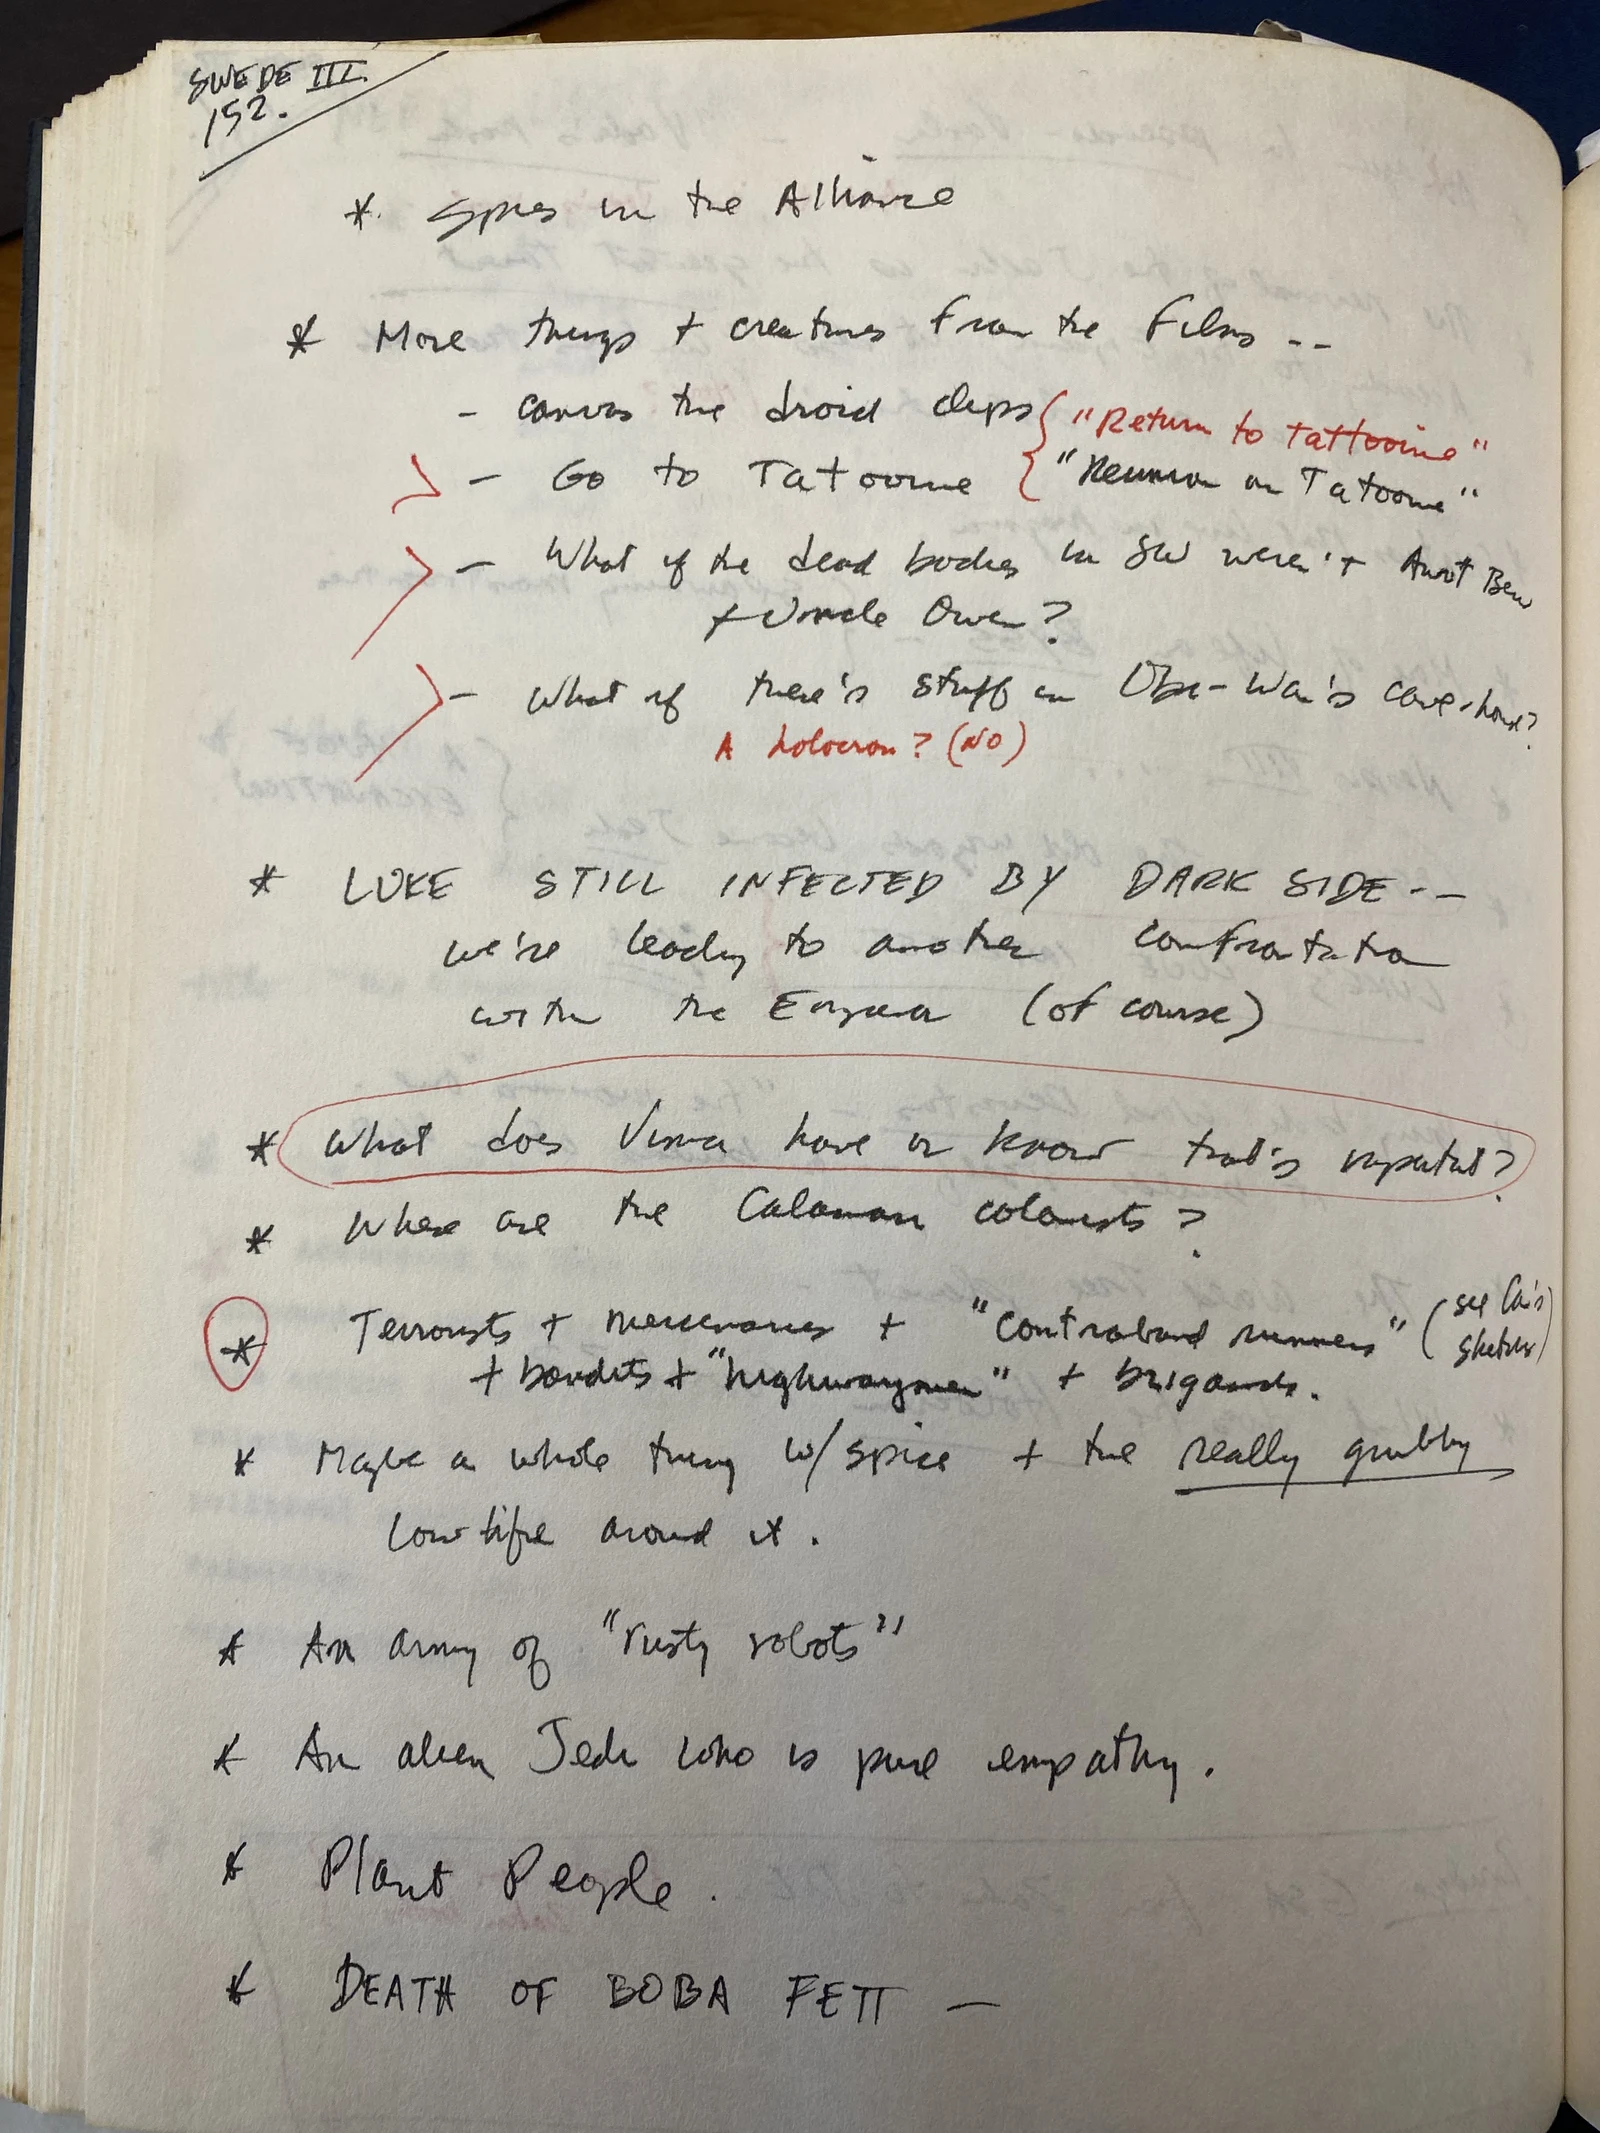 SWEDE III.
152.
* Spies in the Alliance
* More things + creatures from the films --
- canvas the droid clips { "Return to Tattooine"
- Go to Tatooine { "Reunion on Tatooine"
- What if the dead bodies in SW weren't Aunt Beru
+ Uncle Owen?
- What if there's stuff in Obi-Wan's cave-house?
A holocron? (NO)
* LUKE STILL INFECTED BY DARK SIDE --
we're leading to another confrontation
with the Emperor (of course)
* What does Vima have or know that's important?
* Where are the Calamari colonists?
* Terrorists + mercenaries + "contraband runners" (see Cam's
sketches)
+ bandits + "highwaymen" + brigands.
* Maybe a whole thing w/ spice + the really grubby
low life around it.
* An army of "rusty robots"
* An alien Jedi who is pure empathy.
* Plant People.
* DEATH OF BOBA FETT —